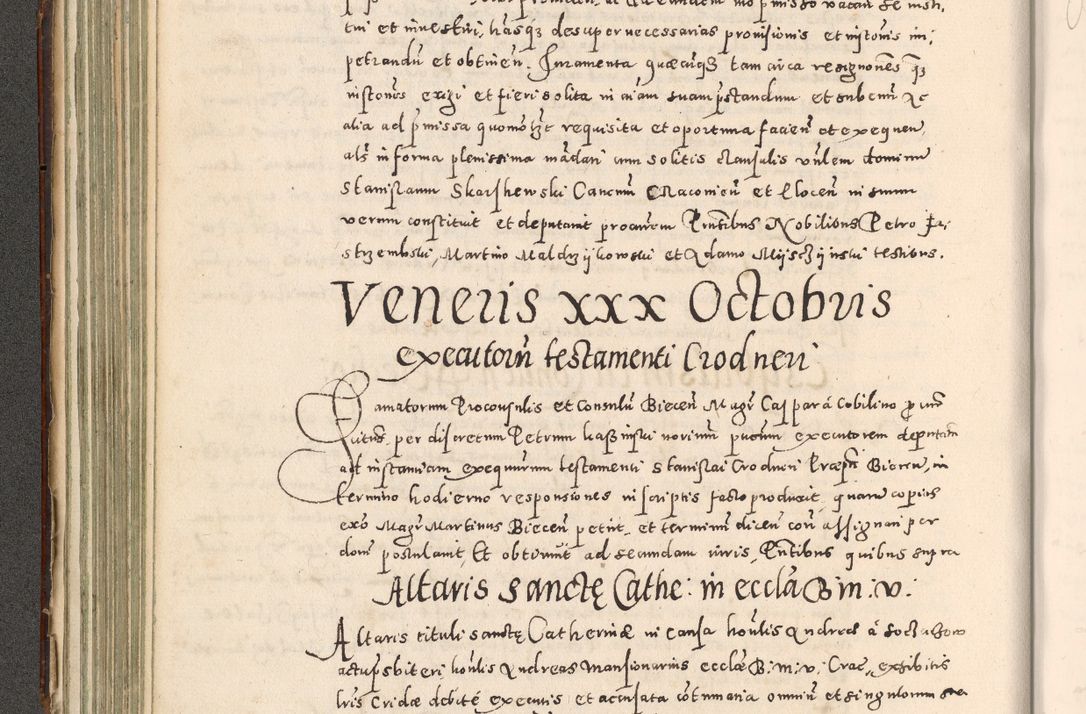 tui et investiri, hasq3 desuper necessarias provisionis et
petrandũ et obtineñ. Iuramenta quæcuq3 tam circa resignones
exigi et fieri solita in aïam suam pstandum et subeuñ
alia ad pmissa quomolzt requisita et oportuna facieñ et exequeñ,
als in forma plenissima mãdati cum solitis clausulis vñlem dominum
Stanislaum Skarshewski Canonũ Cracovieñ et Ploceñ in suum
verum constituit et deputavit procurem Pntibus Nobilibus Petro
strzembski, Martino Maldrzijkowski et Adamo testibus.
Veneris xxx Octobris
executorũ testamenti Crodneri
Famatorum Proconsulis et Consulũ Bieceñ Magr Caspar à Cobilino
per discretum Petrum notrium pucum executorem
ad instantiam exequutrum testamenti Stanislai Crodneri Bieceñ, in
termino hodierno responsiones in scriptis facto produxit, quarum copias
exo Magr Martinus Bieceñ petiit, et terminũ diceñ con assignari per
dom postulavit, Et obtinuit ad secundam iuris, Pntibus quibus supra
Altaris Sanctę Cathe: in eccla B: m: v:
Altaris tituli sanctę Catherinæ in causa honlis Andreæ à
presbiteri honlis Andreas Mansionarius ecclæ B: m: v: Crac, exhibitis
lris Cridæ debite execuis et accusata cotumatia omniũ et singulorum